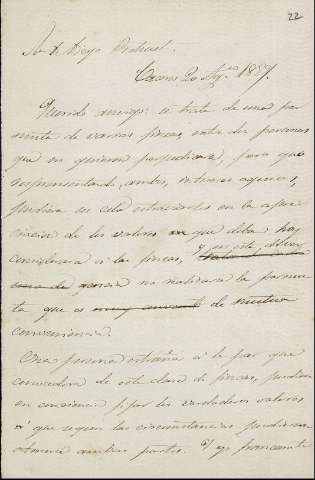 22
Sr. D. Diego
Cáceres 20 Ag.to 1887.
Querido amigo: se trata de una per
muta de varias fincas, entre dos personas
que no quieren perjudicarse, pero que
representando, ambos, intereses agenos,
pudiera su celo estraviarlos en la apre
ciacion de los valores que deba hoy
considerarse á las fincas, y en este
no realizara la permu
ta que es de mutua
conveniencia.
Una persona estraña á la par que
conocedora de esta clase de fincas, pudiera
en conciencia fijar los verdaderos valores
á que segun las circunstancias pudieran
ambas partes. Si yo francamente